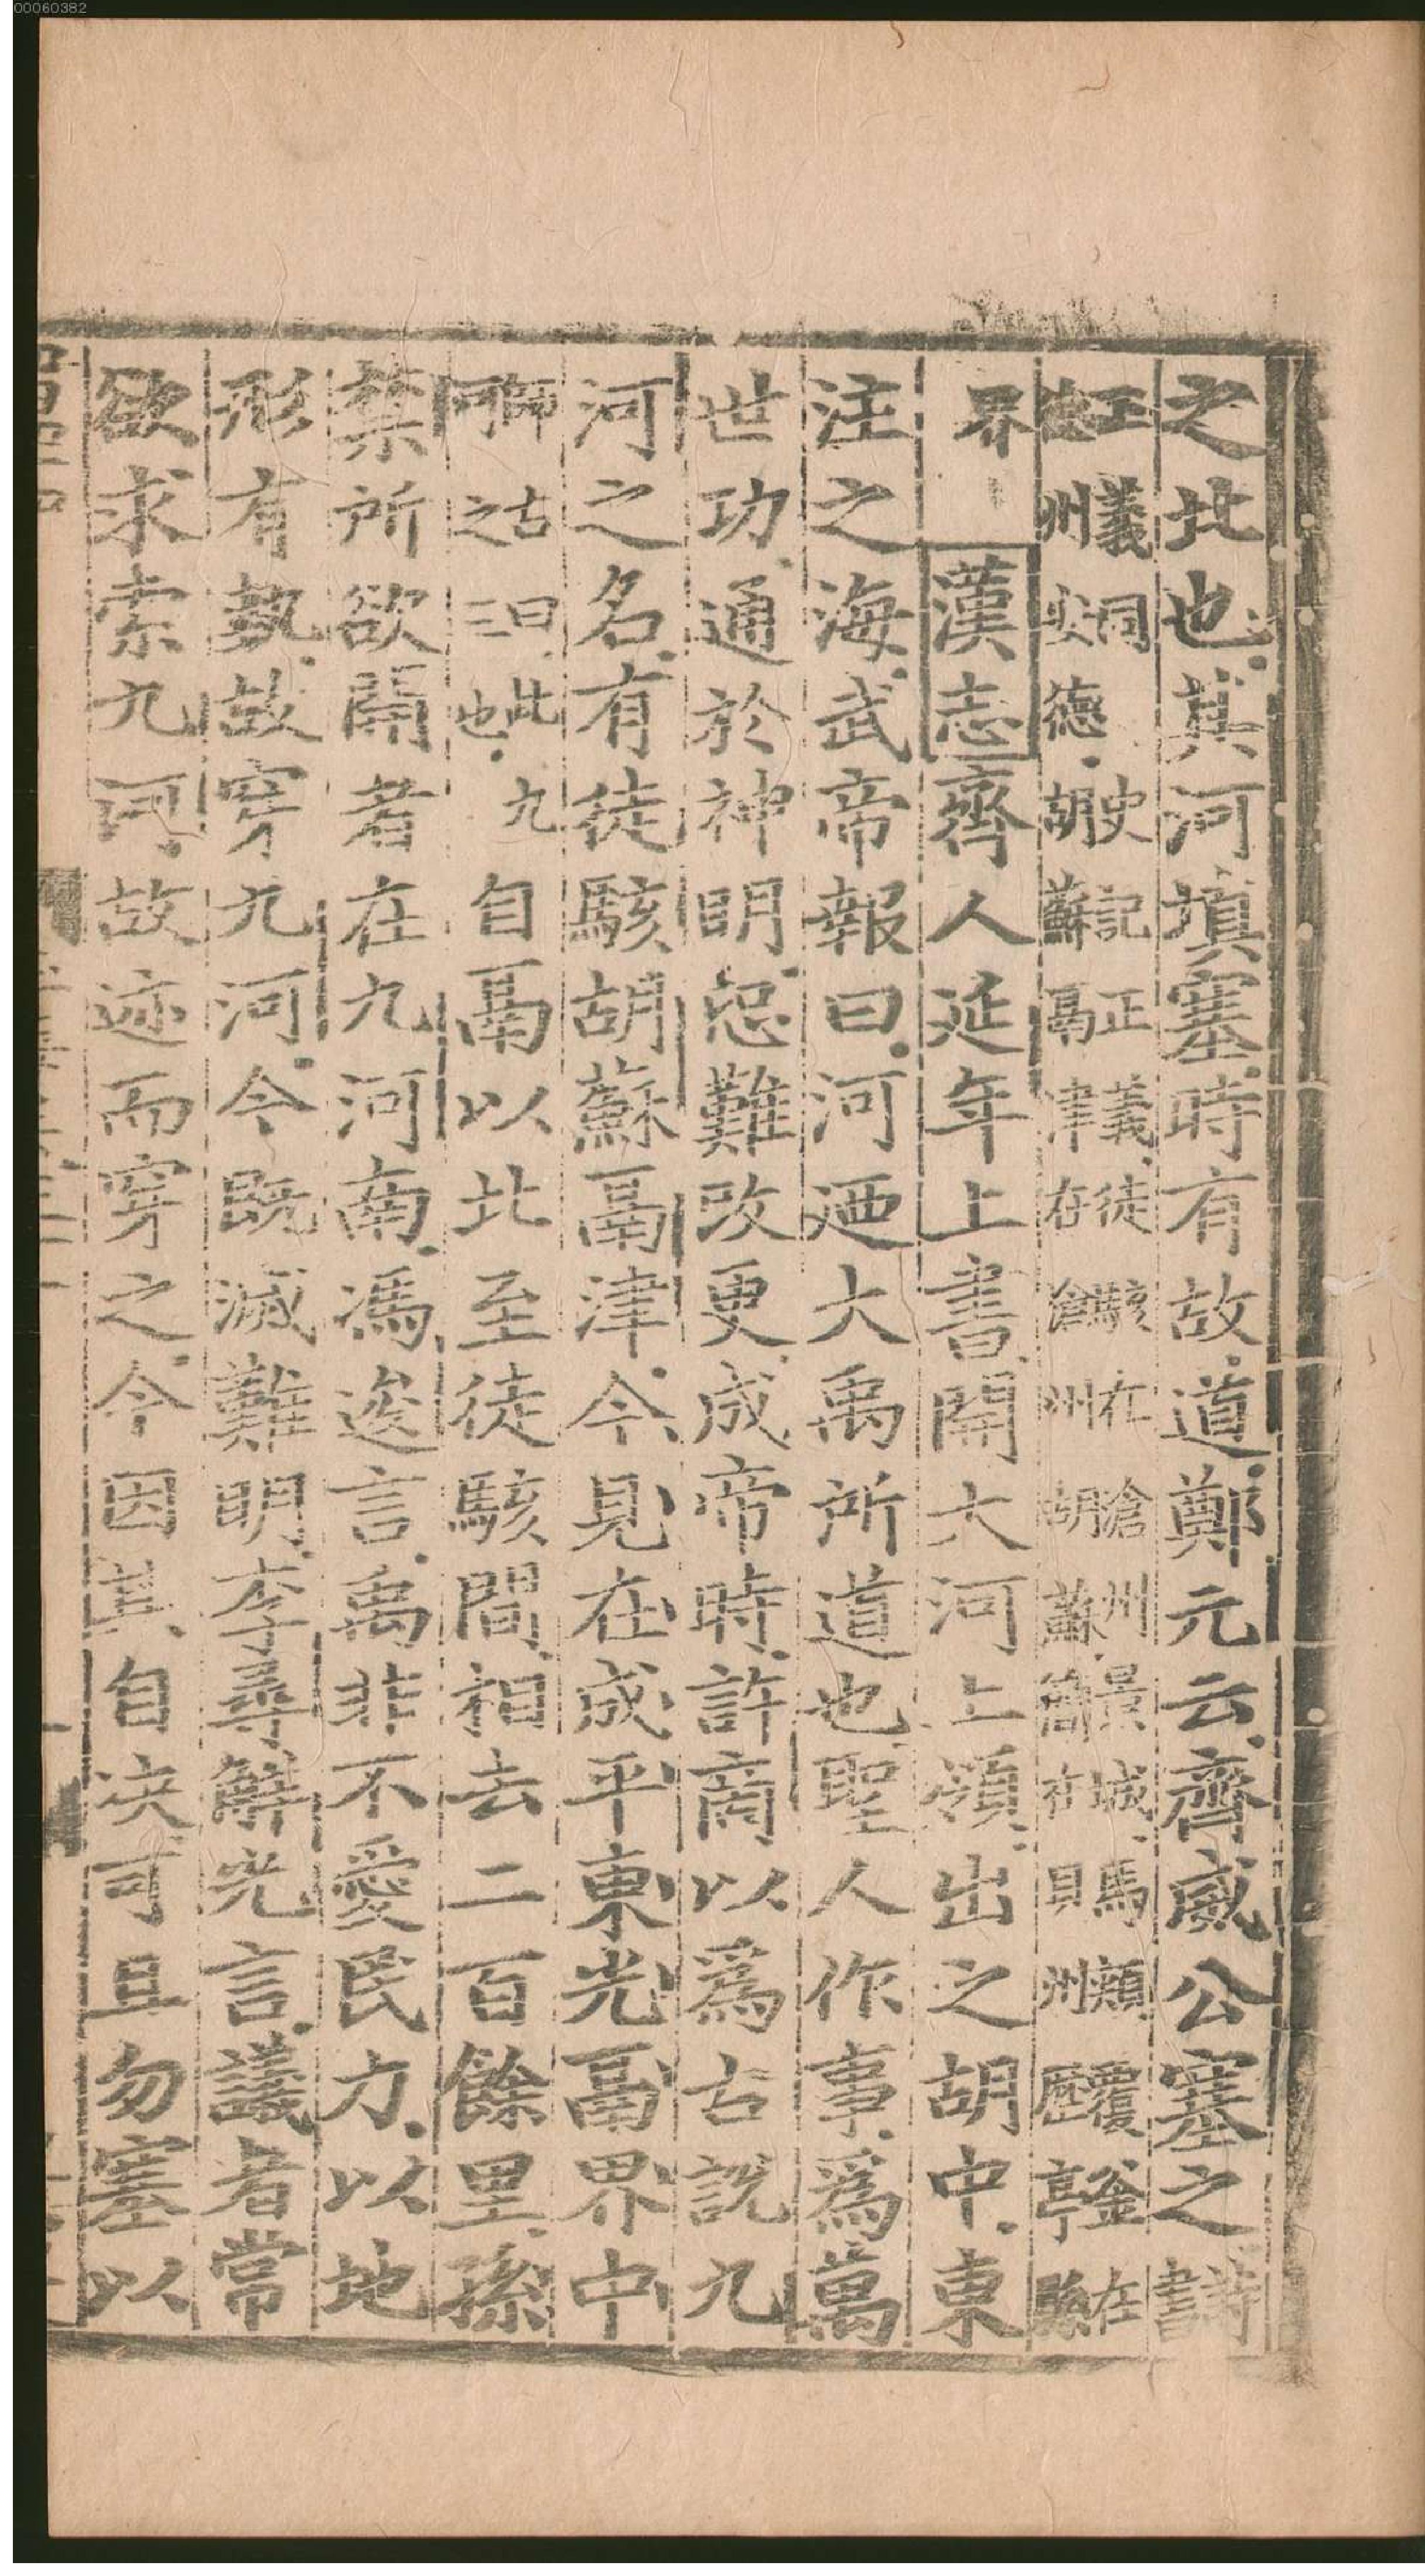 之北也其河填塞時有故道鄭元云齊威公塞之詩
正義同史記正義徒駭在滄州景城馬頰覆釡在
德州安德胡蘇鬲津在滄州胡蘇簡在貝州歷亭縣
界漢志齊人延年上書開大河上領出之胡中東
注之海武帝報曰河廼大禹所道也聖人作事爲萬
世功通於神明恐難改更成帝時許商以爲古說九
河之名有徒駭胡蘇鬲津今見在成平東光鬲界中
師古曰此九河之三也自鬲以北至徒駭間相去二百餘里孫
禁所欲開者在九河南馮逡言禹非不愛民力以地
形有埶故穿九河今既滅難明李尋解光言議者常
欲求索九河故迹而穿之今因其自决可且勿塞以
00060382